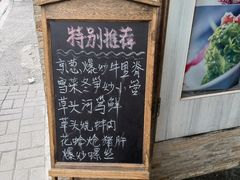 特别推荐
京葱爆炒牛里脊
雪菜冬笋炒小管
草头河蚌鲜
草头烧拌肉
花蛤炝猪肝
爆炒螺丝